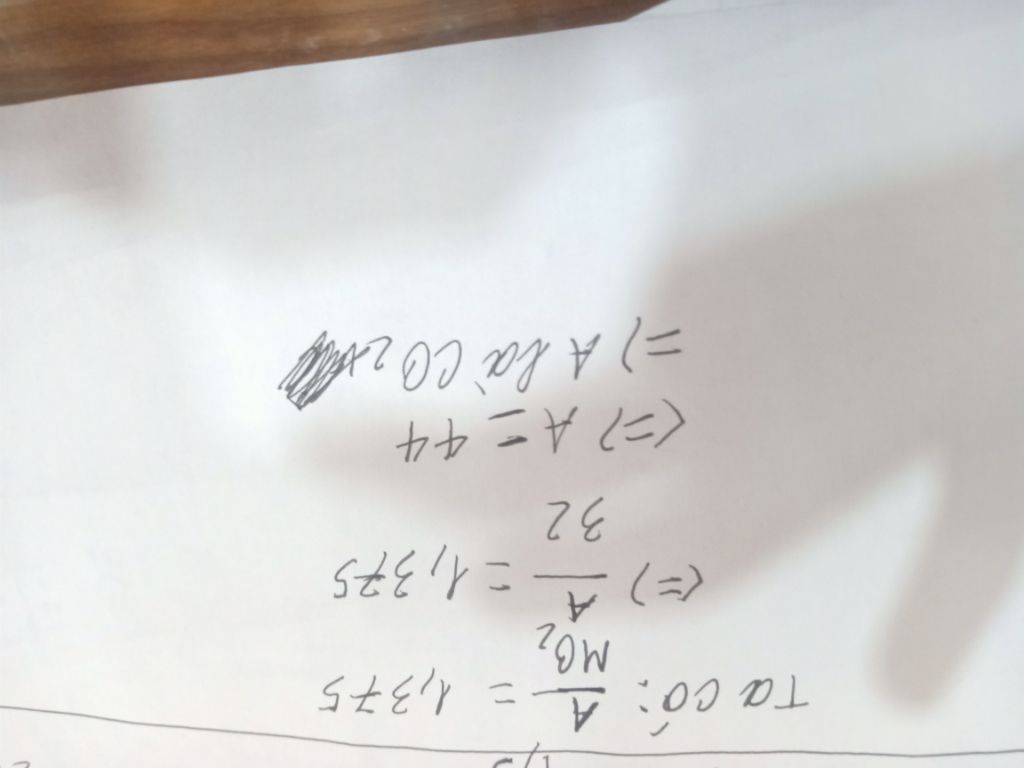 Ta có: A/MO₂ = 1,375
<=> A/32 = 1,375
<=> A = 44
=> A là CO₂